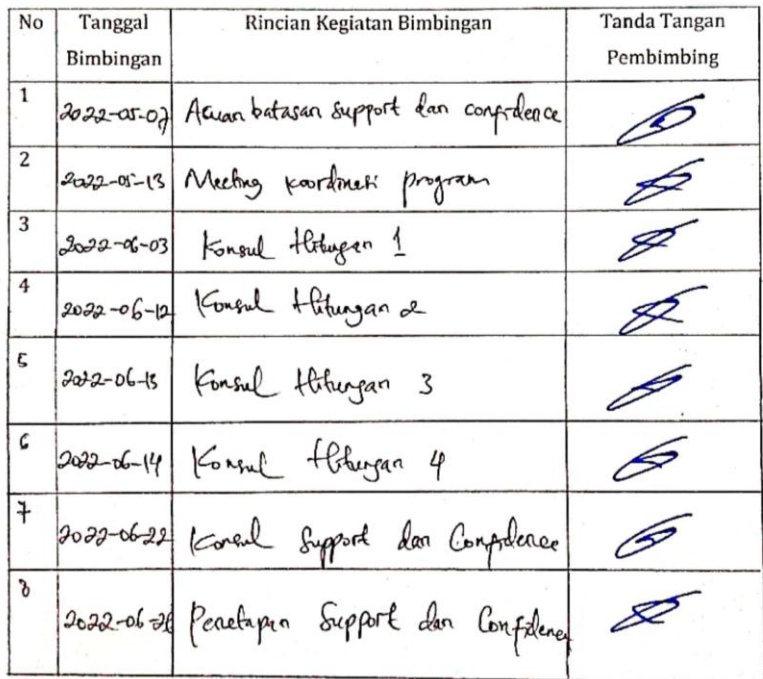 No Tanggal Bimbingan Rincian Kegiatan Bimbingan Tanda Tangan Pembimbing
1 2022-05-07 Acuan batasan support dan confidence
2 2022-05-13 Meeting koordinasi program
3 2022-06-03 Konsul Hitungan 1
4 2022-06-12 Konsul Hitungan 2
5 2022-06-13 Konsul Hitungan 3
6 2022-06-14 Konsul Hitungan 4
7 2022-06-22 Konsul Support dan Confidence
8 Penetapan Support dan Confidence